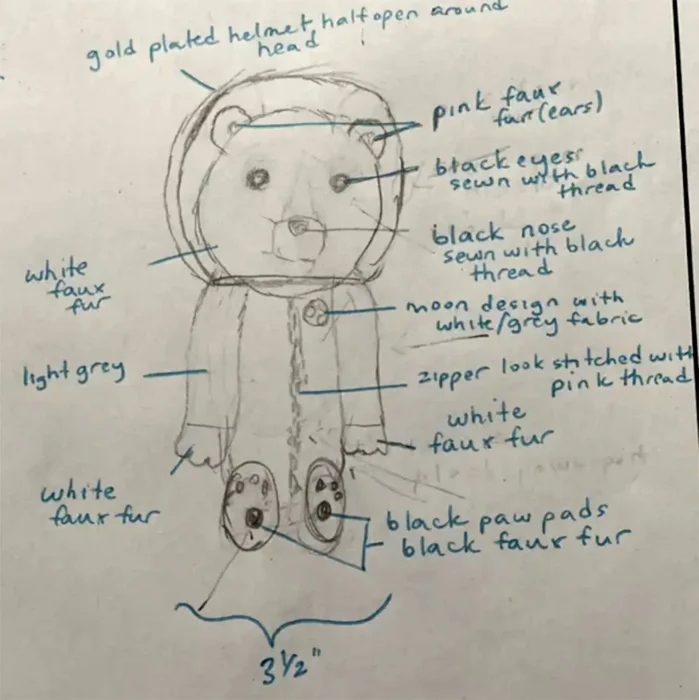 gold plated helmet half open around
head
pink faux
fur (ears)
black eyes
sewn with black
thread
black nose
sewn with black
thread
white
faux
fur
moon design with
white/grey fabric
light grey
zipper look stitched with
pink thread
white
faux fur
white
faux fur
black paw pads
black faux fur
3 1/2"